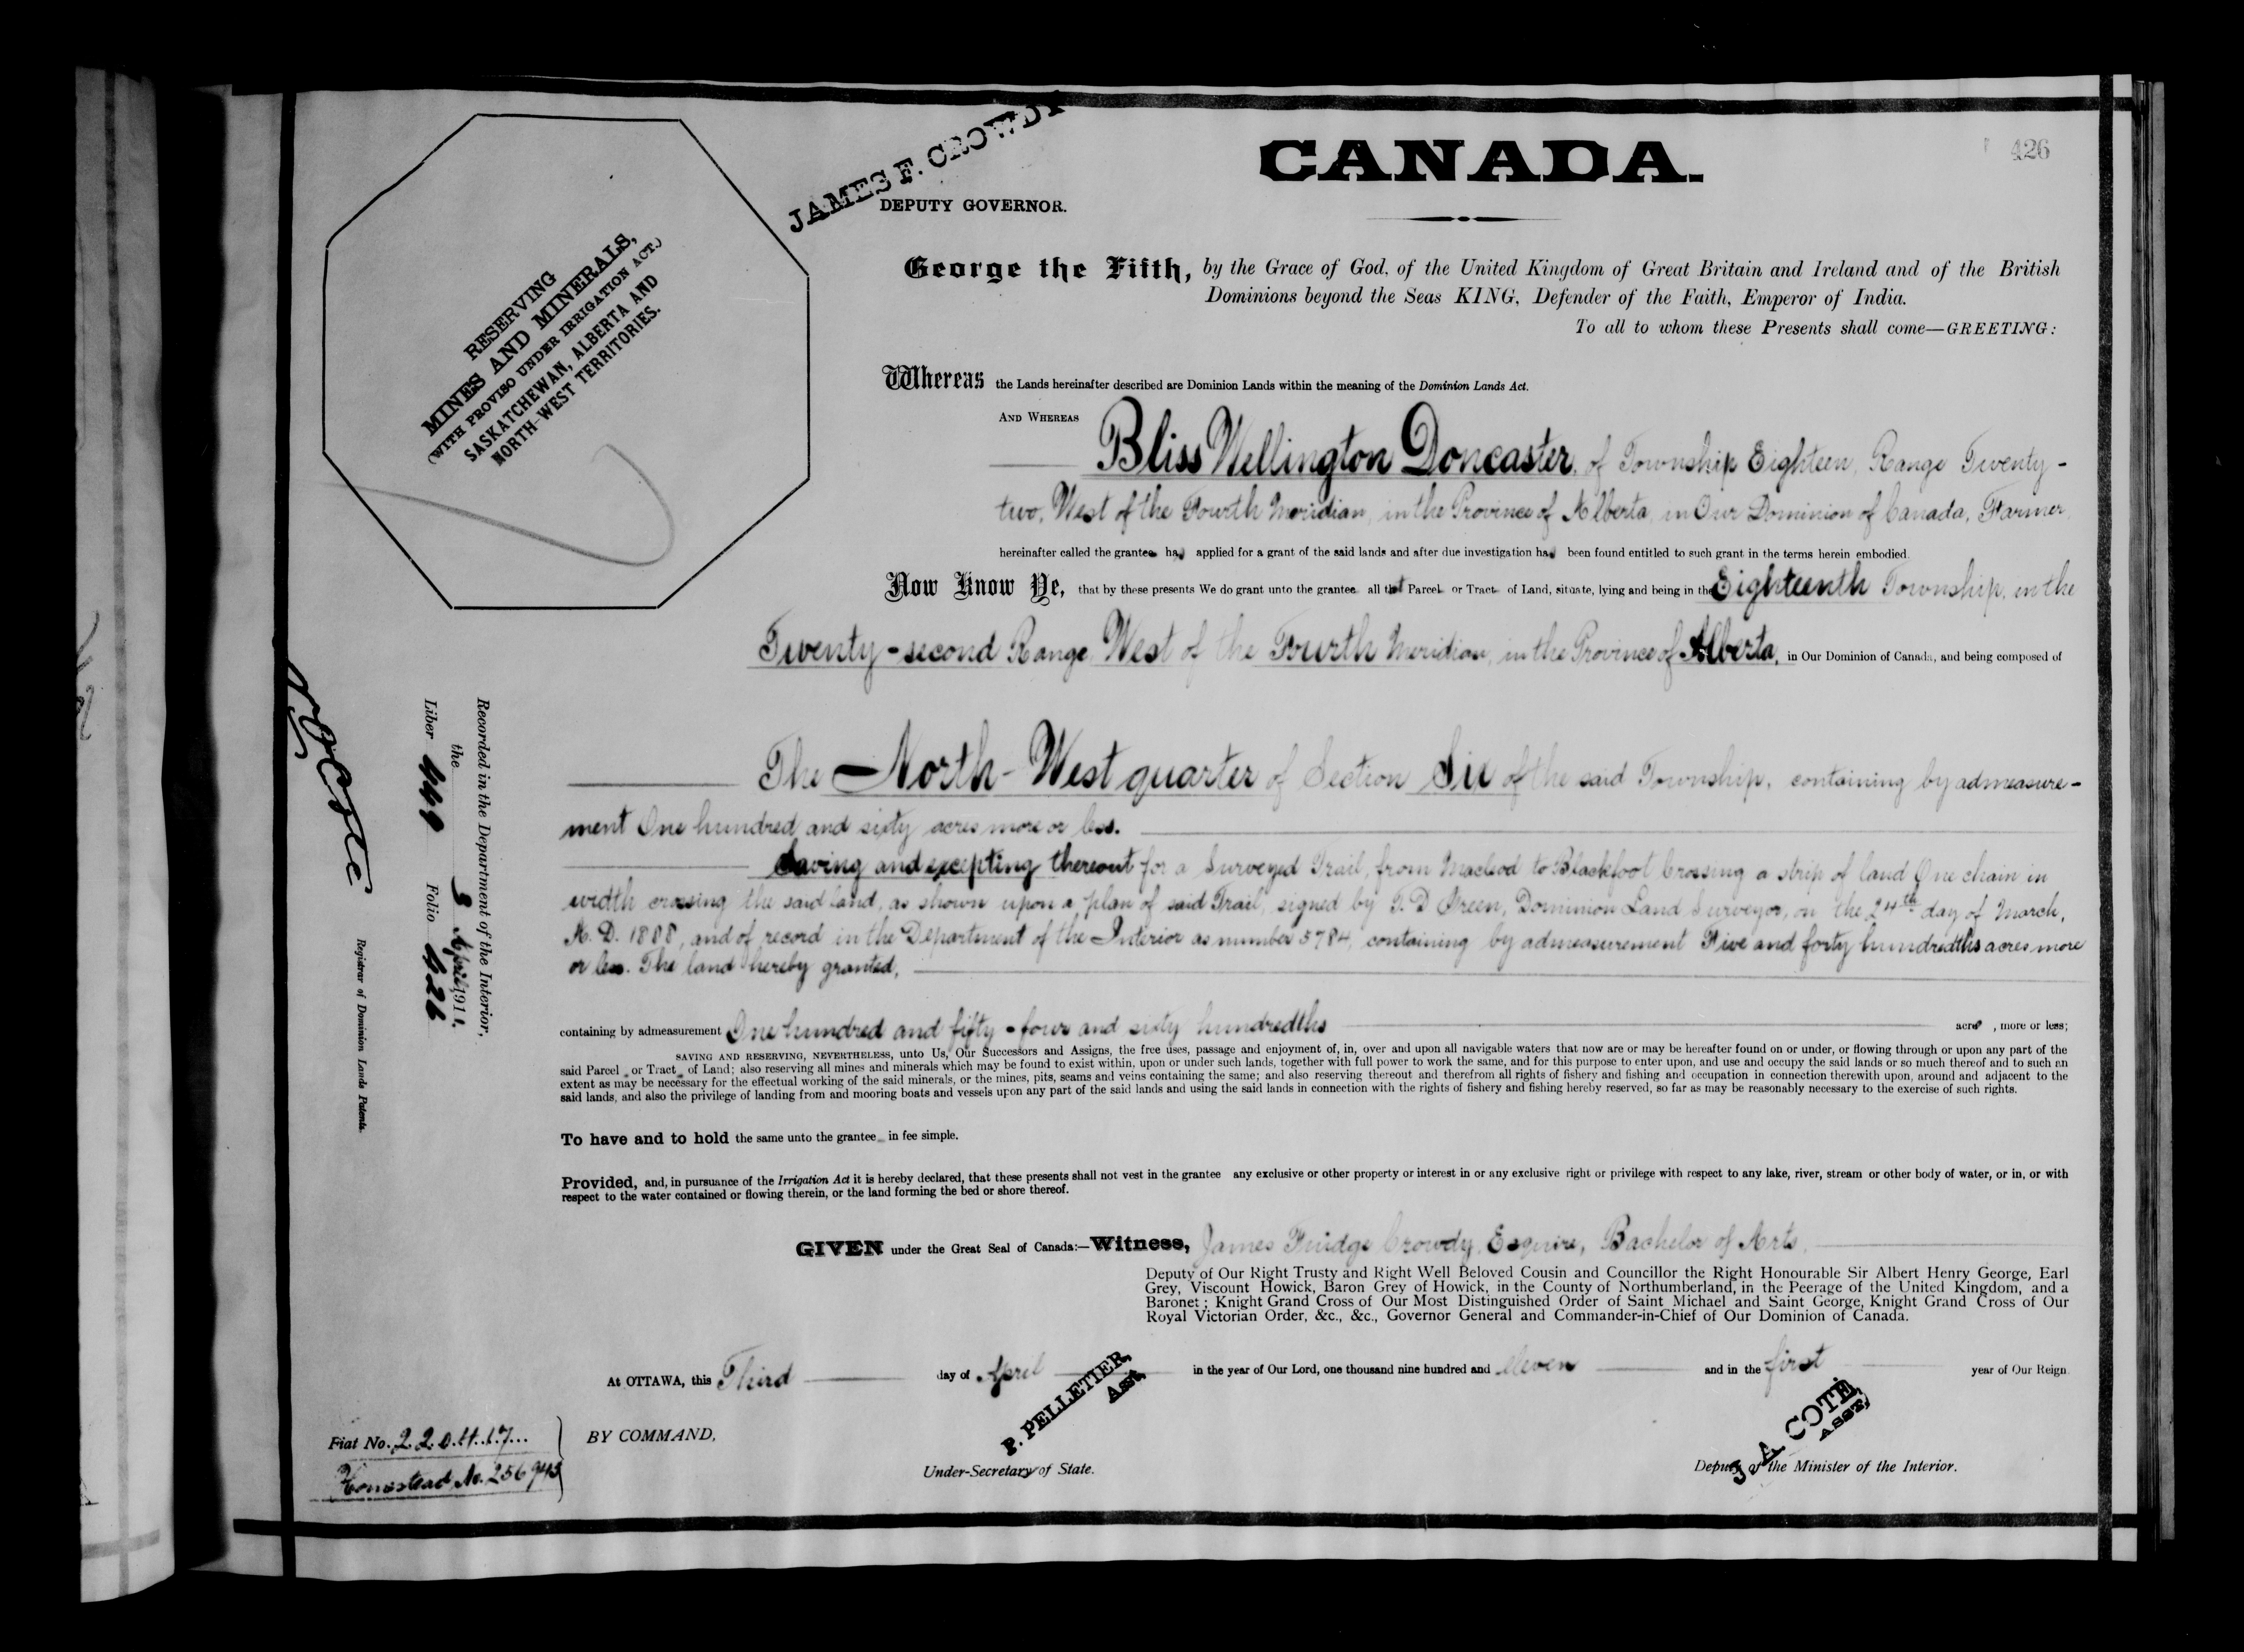 426
CANADA.
JAMES F. CROWDY
DEPUTY GOVERNOR.
RESERVING
MINES AND MINERALS,
(WITH PROVISO UNDER IRRIGATION ACT.)
SASKATCHEWAN, ALBERTA AND
NORTH-WEST TERRITORIES.
George the Fifth, by the Grace of God, of the United Kingdom of Great Britain and Ireland and of the British
Dominions beyond the Seas KING, Defender of the Faith, Emperor of India.
To all to whom these Presents shall come—GREETING:
Whereas the Lands hereinafter described are Dominion Lands within the meaning of the Dominion Lands Act.
AND WHEREAS
Bliss Wellington Doncaster, of Township Eighteen, Range Twenty-
two, West of the Fourth Meridian, in the Province of Alberta, in Our Dominion of Canada, Farmer
hereinafter called the grantee has applied for a grant of the said lands and after due investigation has been found entitled to such grant in the terms herein embodied.
Now Know Ye, that by these presents We do grant unto the grantee all that Parcel or Tract of Land, situate, lying and being in the Eighteenth Township, in the
Twenty-second Range West of the Fourth Meridian, in the Province of Alberta, in Our Dominion of Canada, and being composed of
The North-West quarter of Section Six of the said Township, containing by admeasure-
ment One hundred and sixty acres more or less.
Saving and excepting thereout for a Surveyed Trail, from Macleod to Blackfoot Crossing a strip of land One chain in
width crossing the said land, as shown upon a plan of said Trail, signed by T. D Green, Dominion Land Surveyor, on the 24th day of March,
A. D. 1888, and of record in the Department of the Interior as number 5784, containing by admeasurement Five and forty hundredths acres more
or less. The land hereby granted,
containing by admeasurement One hundred and fifty-four and sixty hundredths acres, more or less;
SAVING AND RESERVING, NEVERTHELESS, unto Us, Our Successors and Assigns, the free uses, passage and enjoyment of, in, over and upon all navigable waters that now are or may be hereafter found on or under, or flowing through or upon any part of the
said Parcel or Tract of Land; also reserving all mines and minerals which may be found to exist within, upon or under such lands, together with full power to work the same, and for this purpose to enter upon, and use and occupy the said lands or so much thereof and to such an
extent as may be necessary for the effectual working of the said minerals, or the mines, pits, seams and veins containing the same; and also reserving thereout and therefrom all rights of fishery and fishing and occupation in connection therewith upon, around and adjacent to the
said lands, and also the privilege of landing from and mooring boats and vessels upon any part of the said lands and using the said lands in connection with the rights of fishery and fishing hereby reserved, so far as may be reasonably necessary to the exercise of such rights.
To have and to hold the same unto the grantee in fee simple.
Provided, and, in pursuance of the Irrigation Act it is hereby declared, that these presents shall not vest in the grantee any exclusive or other property or interest in or any exclusive right or privilege with respect to any lake, river, stream or other body of water, or in, or with
respect to the water contained or flowing therein, or the land forming the bed or shore thereof.
GIVEN under the Great Seal of Canada:—Witness, James Fuidge Crowdy, Esquire, Bachelor of Arts,
Deputy of Our Right Trusty and Right Well Beloved Cousin and Councillor the Right Honourable Sir Albert Henry George, Earl
Grey, Viscount Howick, Baron Grey of Howick, in the County of Northumberland, in the Peerage of the United Kingdom, and a
Baronet; Knight Grand Cross of Our Most Distinguished Order of Saint Michael and Saint George, Knight Grand Cross of Our
Royal Victorian Order, &c., &c., Governor General and Commander-in-Chief of Our Dominion of Canada.
At OTTAWA, this Third day of April in the year of Our Lord, one thousand nine hundred and eleven and in the first year of Our Reign
BY COMMAND,
P. PELLETIER,
Asst.
Under-Secretary of State.
J. A. COTE,
ASST.
Deputy of the Minister of the Interior.
Fiat No. 22047
Homestead No. 256943
Recorded in the Department of the Interior,
the 3 April 1911.
Liber 449 Folio 426
Registrar of Dominion Lands Patents.